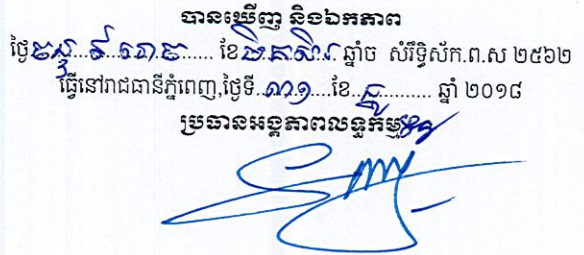 បានឃើញ និងឯកភាព
ថ្ងៃចន្ទ ៩ រោច ខែមិគសិរ ឆ្នាំច សំរឹទ្ធិស័ក.ព.ស ២៥៦២
ធ្វើនៅរាជធានីភ្នំពេញ,ថ្ងៃទី..៣១....ខែ..ធ្នូ.......... ឆ្នាំ ២០១៨
ប្រធានអង្គភាពលទ្ធកម្ម